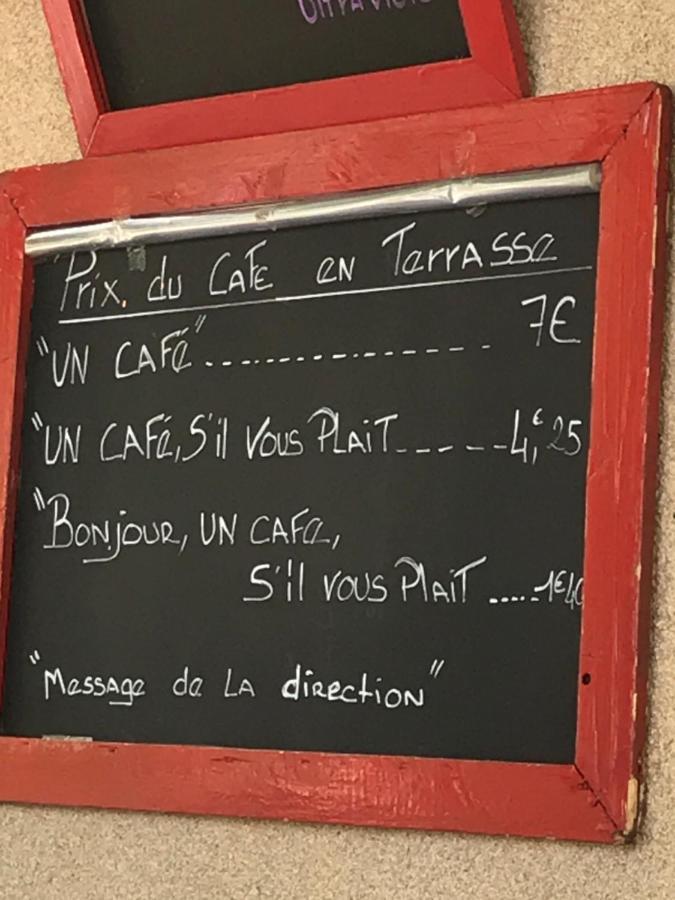 Prix. du CAFE EN TerrASSE
"UN CAFé"............... 7€
"UN CAFé, S'il Vous PLAiT.-----4,€25
"BONJOUR, UN CAFE,
S'il vous PlAiT .....1€40
"MessAge de LA diRectioN"